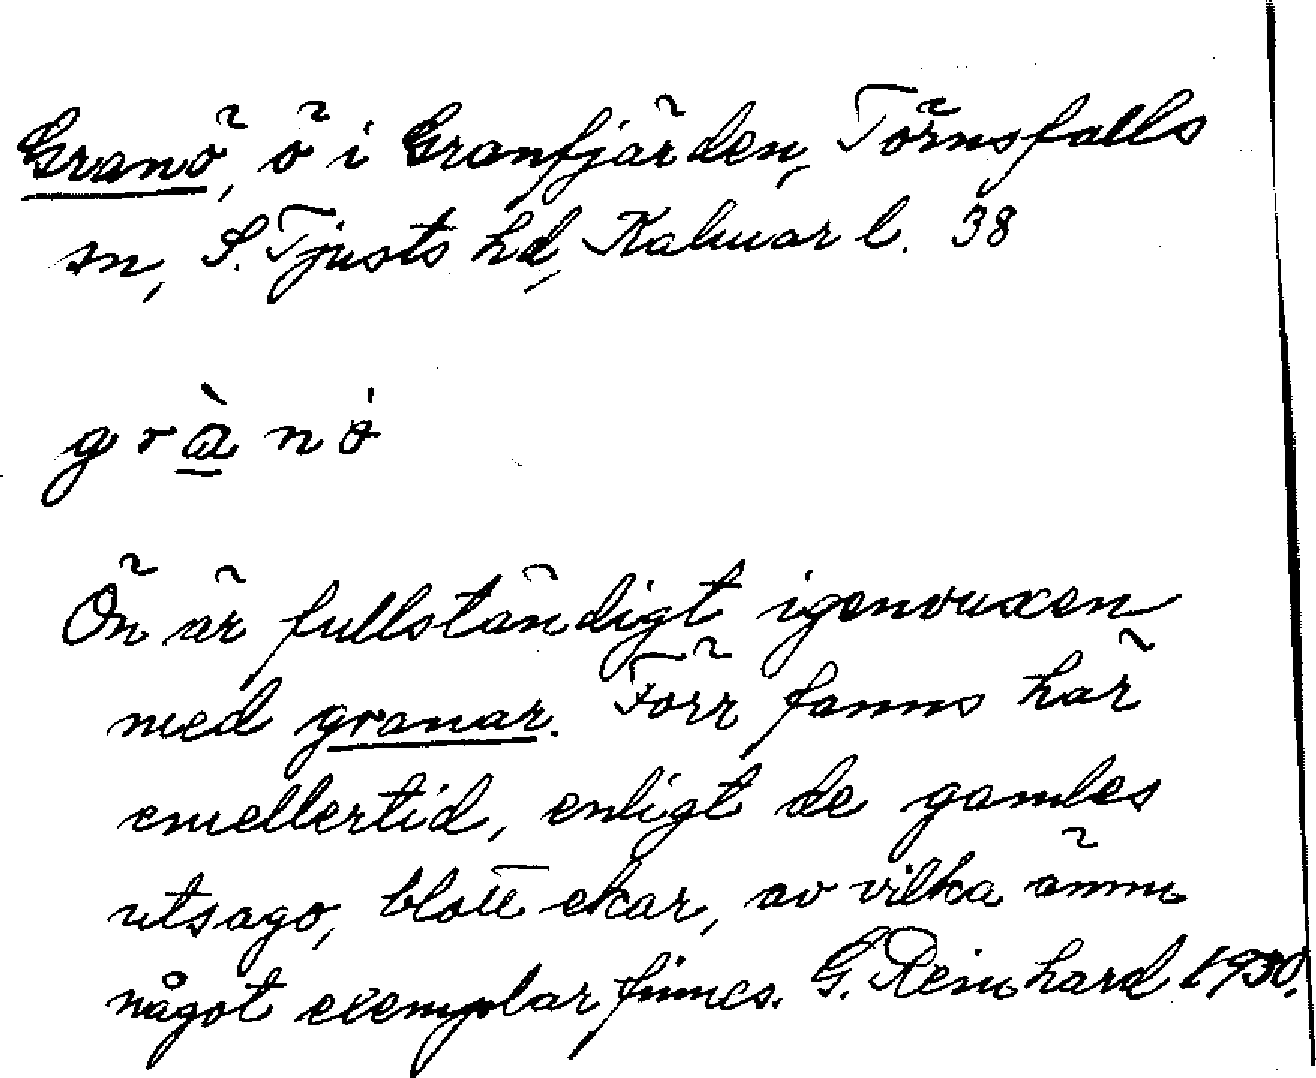 Granö, ö i Granfjärden, Törnsfalls
sn, S. Tjusts hd, Kalmar l. 38
grànö
Ön är fullständigt igenvuxen
med granar. Förr fanns här
emellertid, enligt de gamles
utsago, blott ekar, av vilka ännu
något exemplar finnes. G. Reinhard 1930.